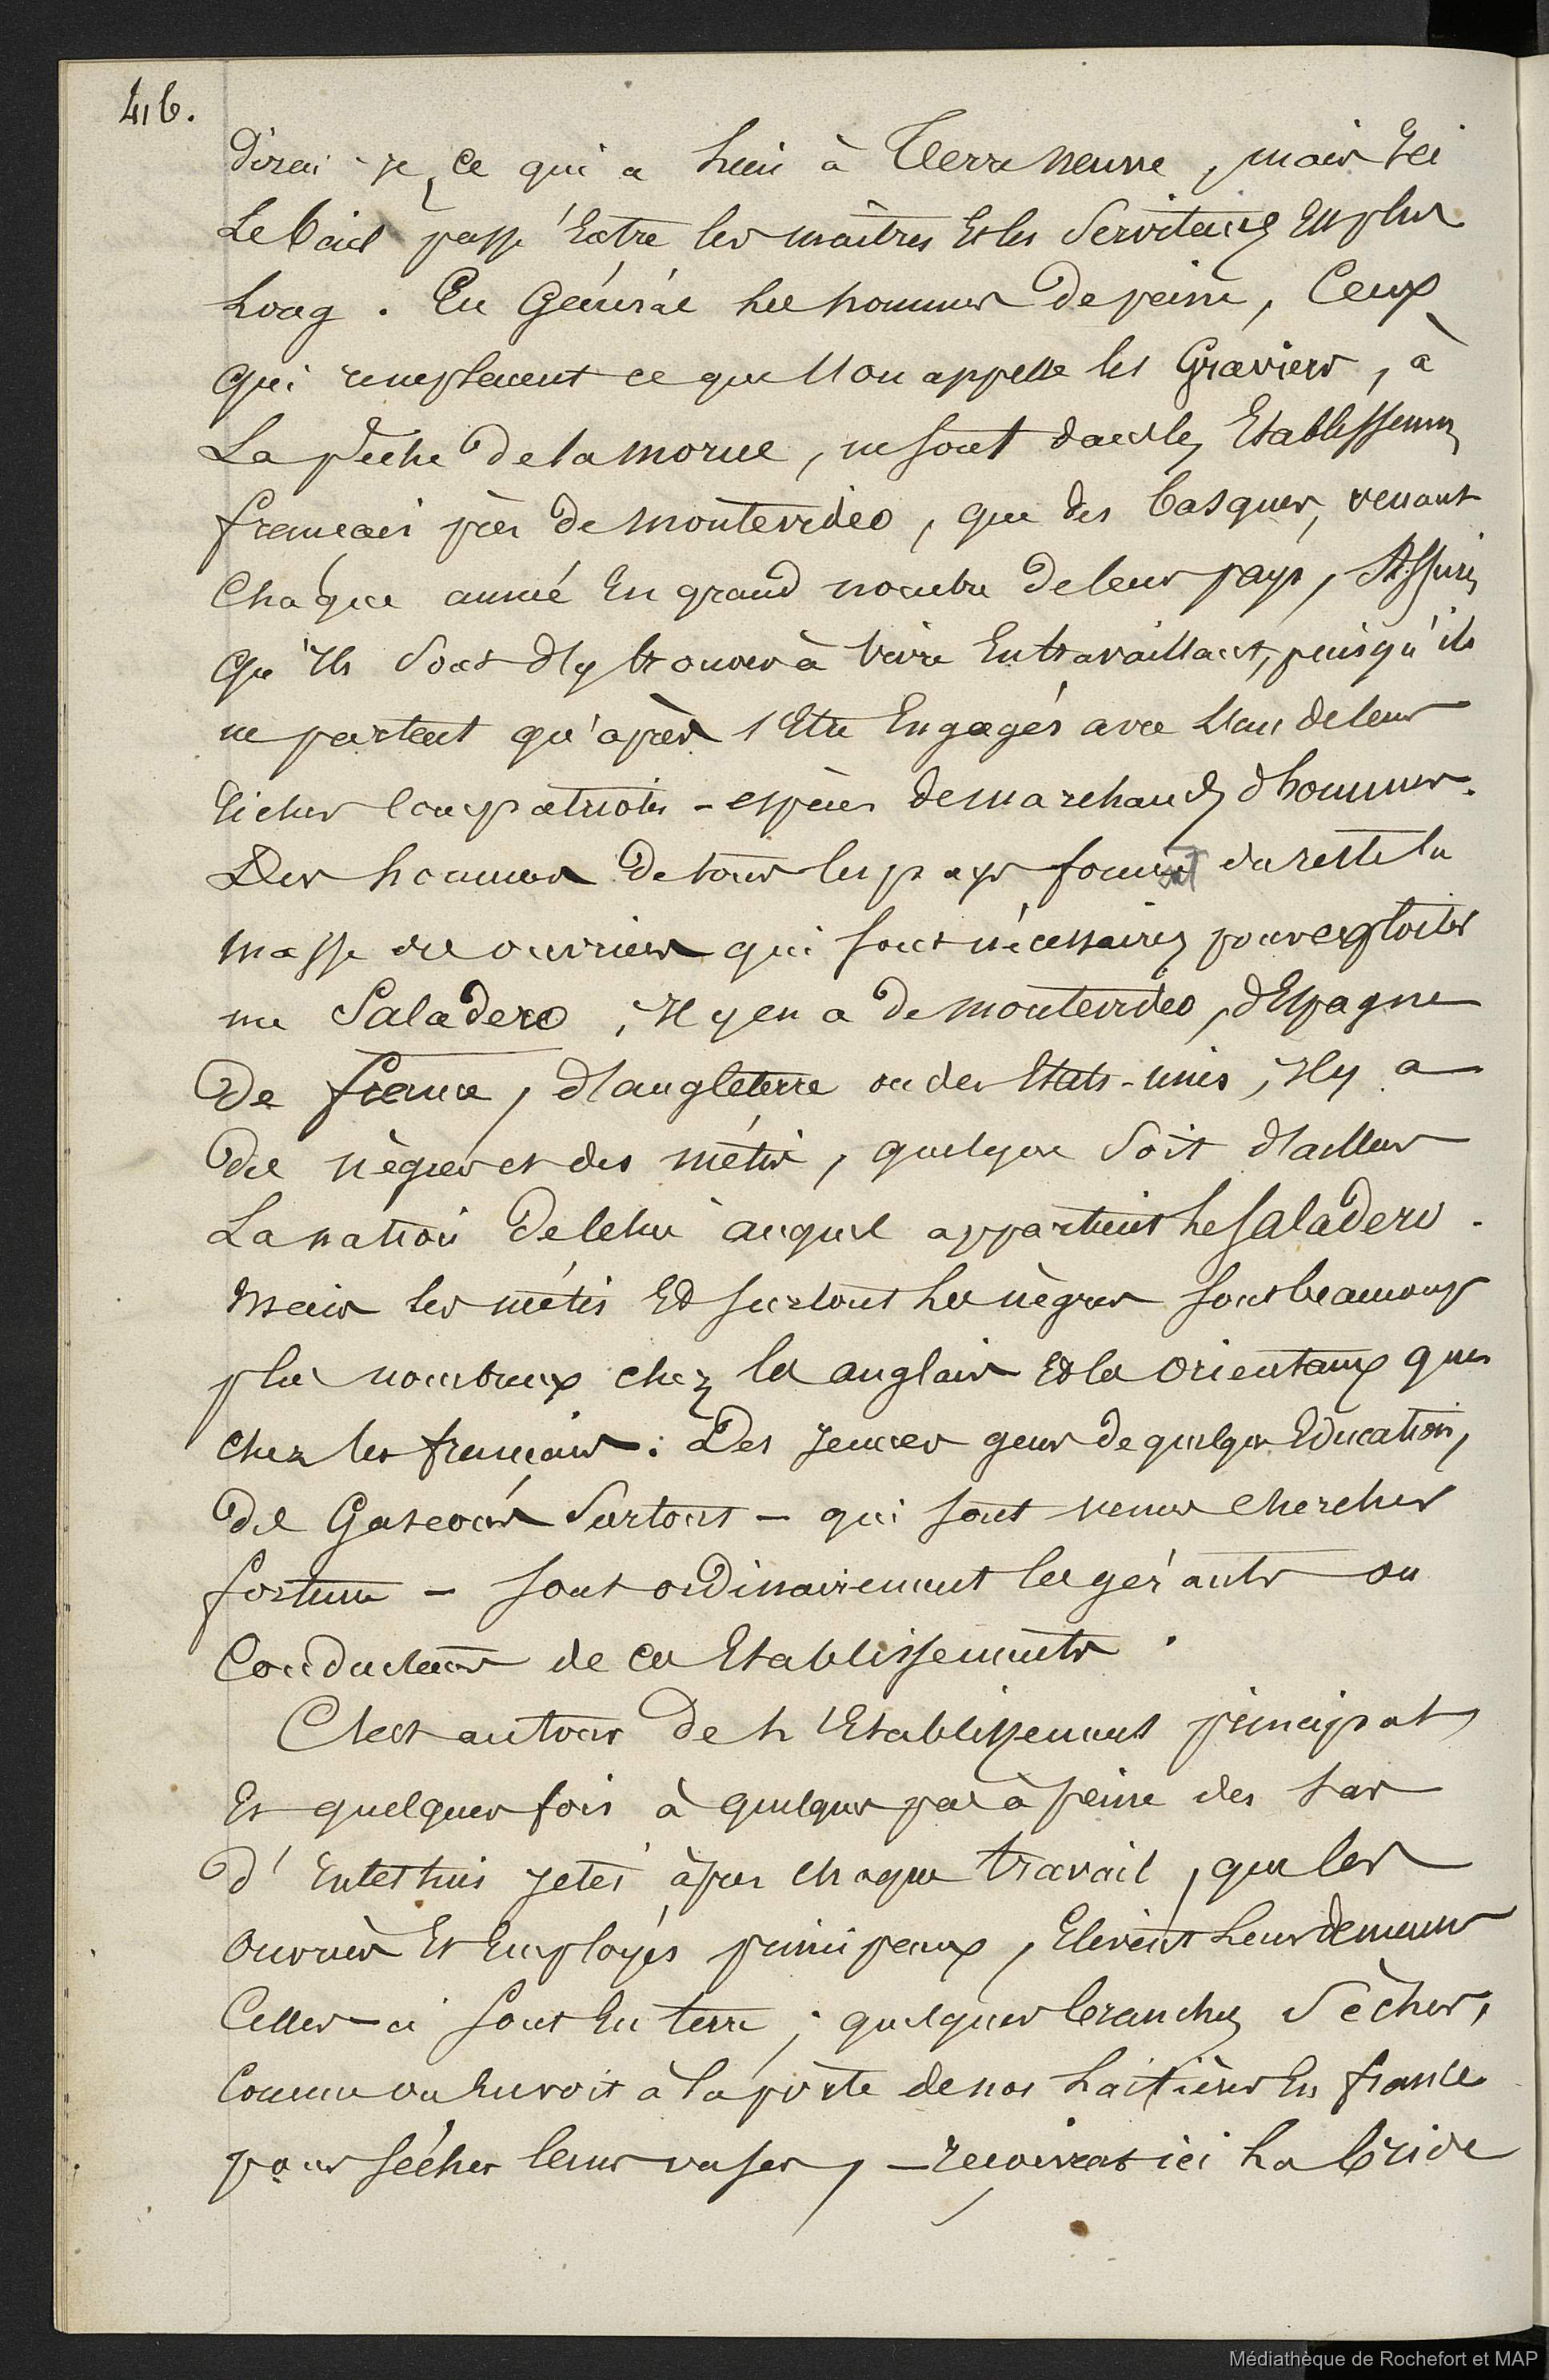 416.
dirai-je, ce qui a lieu à Terre neuve, mais ici
Le bail passé entre les maîtres et les serviteurs est plus
long. En Général les hommes de peine, Ceux
qui remplacent ce que l'on appelle les Graviers, à
La pêche de la morue, ne sont dans les Etablissemens
français près de montevideo, que des basques, venant
Chaque année En grand nombre de leur pays, Assurés
qu'ils sont d'y trouver à vivre En travaillant, puisqu'ils
ne partent qu'après s'Etre Engagés avec l'un de leurs
riches compatriotes - espèces de marchands d'hommes.
Des hommes de tous les pays forment du reste la
masse des ouvriers qui sont nécessaires pour exploiter
un Saladero, il y en a de montevideo, d'Espagne
De france, d'angleterre ou des Etats-unis, il y a
des nègres et des métis, quelque soit d'ailleurs
La nation de celui auquel appartient le saladero.
mais les métis Et surtout les nègres sont beaucoup
plus nombreux chez les anglais Et les orientaux que
chez les français. Des jeunes gens de quelque Education,
des Gascons surtout - qui sont venus chercher
fortune - sont ordinairement les gérants ou
Conducteurs de ces Etablissements.
C'est autour de l'Etablissement principal
Et quelques fois à quelques pas à peine des tas
d'intestins jetés après chaque travail, que les
ouvriers Et Employés principaux, Elèvent leurs demeures
Celles-ci sont En terre; quelques branches sèches,
Comme on En voit à la porte de nos laitières En france
pour sécher leurs vases, - reçoivent ici la bride
Médiathèque de Rochefort et MAP